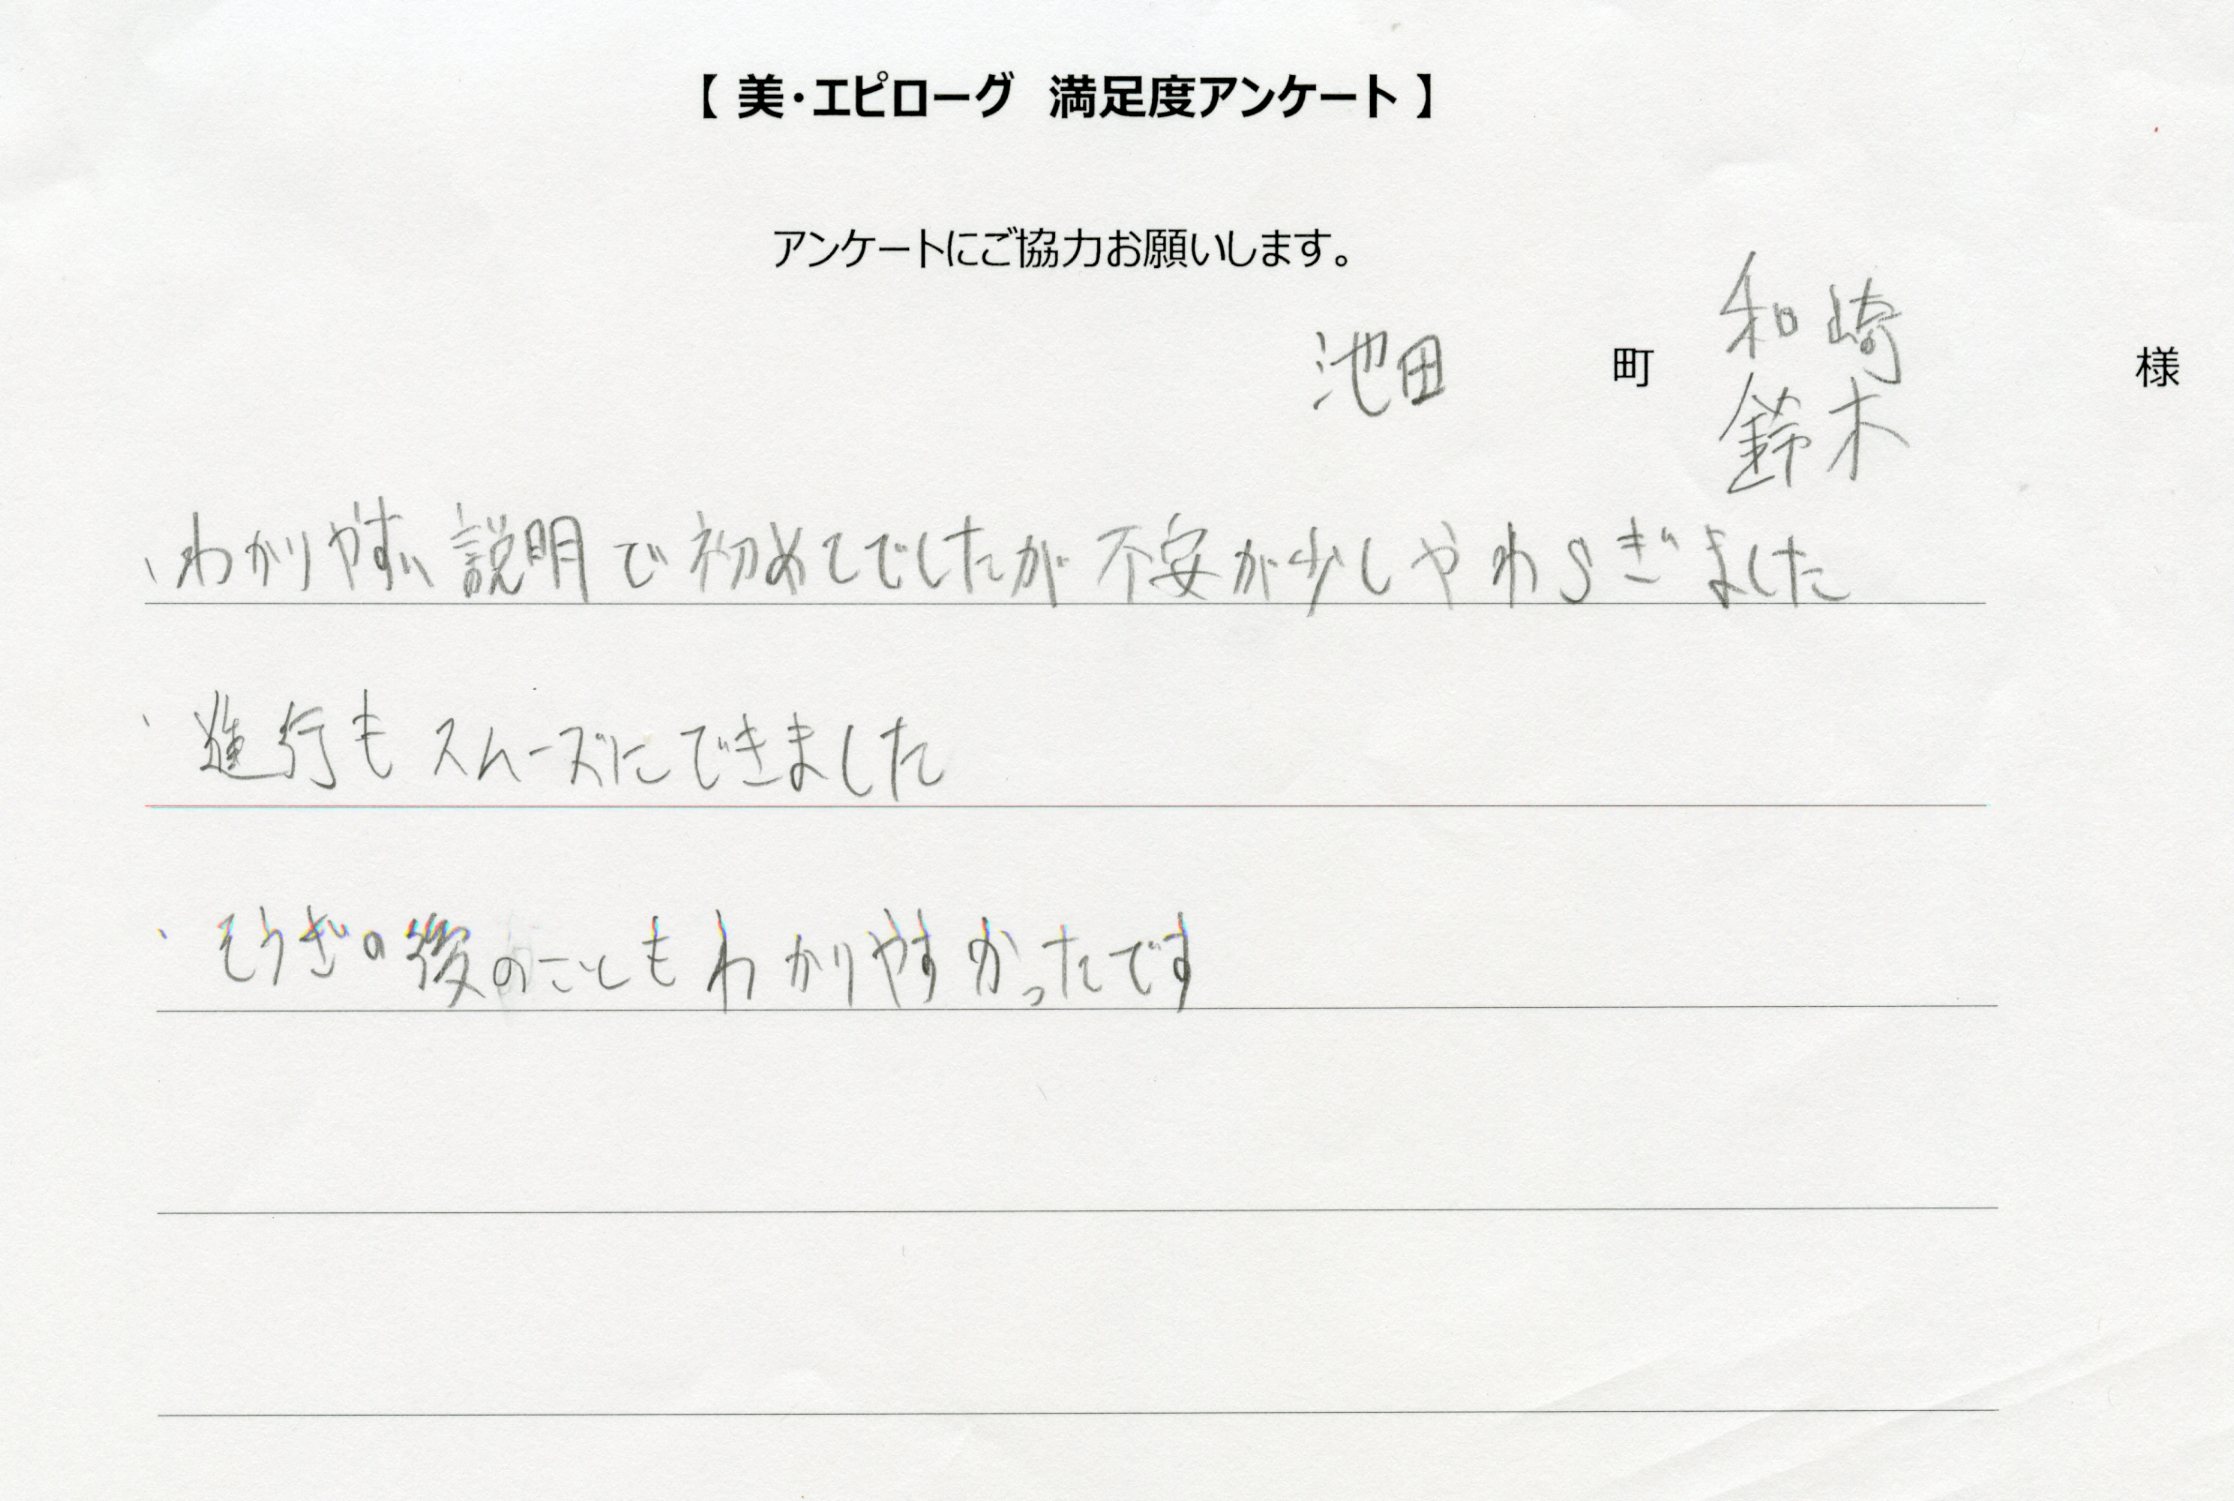 【 美・エピローグ 満足度アンケート 】
アンケートにご協力お願いします。
池田 町 和崎 様
鈴木
、わかりやすい説明で初めてでしたが不安が少しやわらぎました
、進行もスムーズにできました
、そうぎの後のこともわかりやすかったです